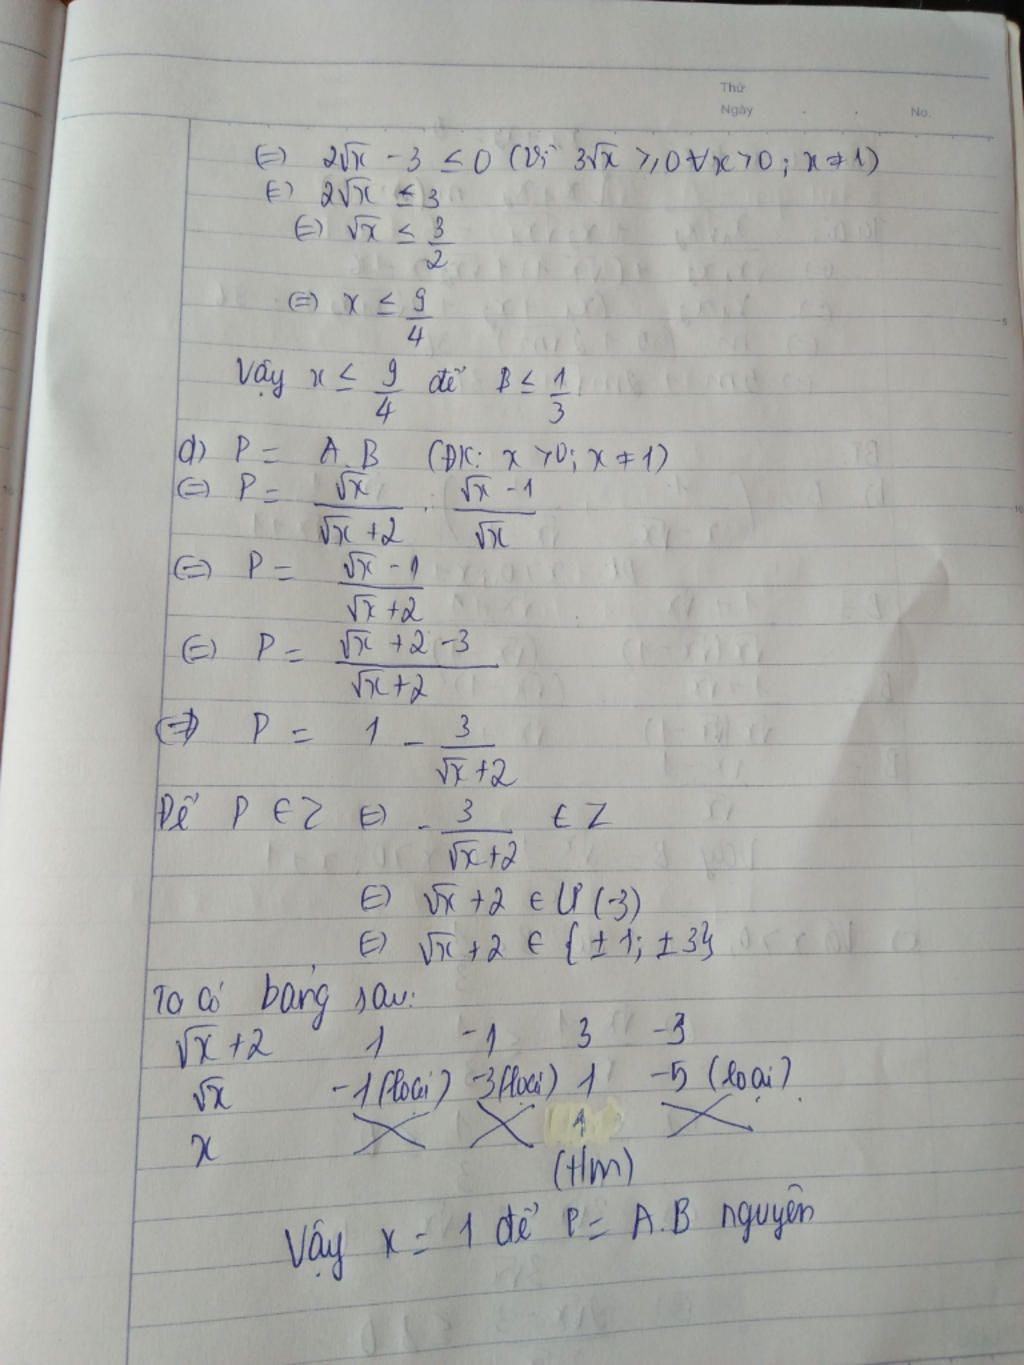 Thứ
Ngày No.
(=) 2√x - 3 ≤ 0 (Vì 3√x ≥ 0 ∀ x > 0 ; x ≠ 1)
(=) 2√x ≤ 3
(=) √x ≤ 3/2
(=) x ≤ 9/4
Vậy x ≤ 9/4 để B ≤ 1/3
d) P = A.B (ĐK: x > 0; x ≠ 1)
(=) P = √x/(√x + 2) . (√x - 1)/√x
(=) P = (√x - 1)/(√x + 2)
(=) P = (√x + 2 - 3)/(√x + 2)
(=) P = 1 - 3/(√x + 2)
Để P ∈ Z (=) - 3/(√x + 2) ∈ Z
(=) √x + 2 ∈ Ư (-3)
(=) √x + 2 ∈ {±1; ±3}
Ta có bảng sau:
√x + 2 1 -1 3 -3
√x -1 (loại) -3 (loại) 1 -5 (loại)
x 1
(t/m)
Vậy x = 1 để P = A.B nguyên